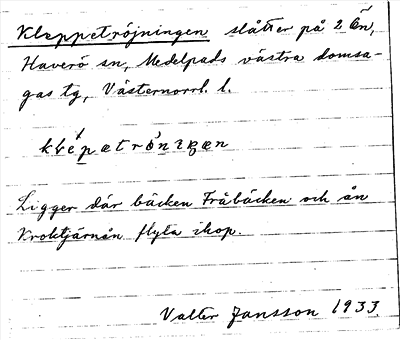 Kleppetröjningen slåtter på 2 Ön,
Haverö sn, Medelpads västra domsa-
gas tg, Västernorrl. l.
Ligger där bäcken Tråbäcken och ån
Kroktjärnån flyta ihop.
Valter Jansson 1933